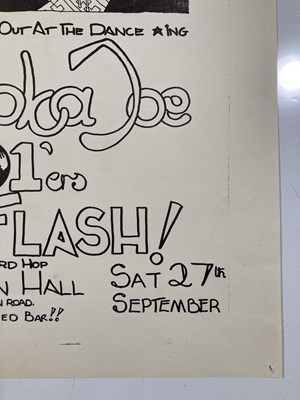 Out At The Dance ★ing
oka Joe
01'ers
FLASH!
RD HOP
N HALL
N ROAD.
ED BAR!!
SAT 27th
SEPTEMBER